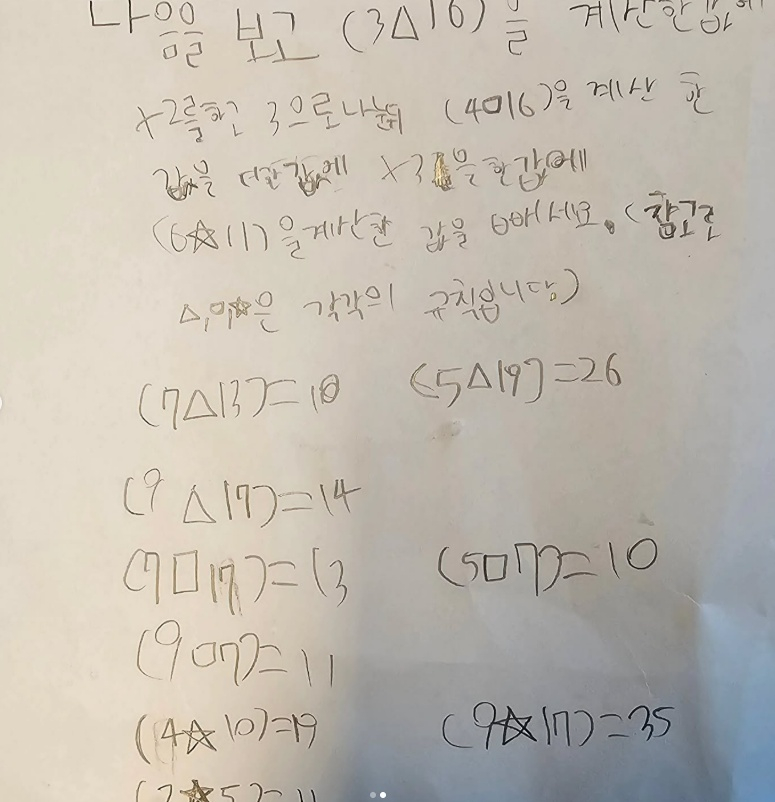 다음을 보고 (3△16)을 계산한값에
×2를하고 3으로나눠 (4□16)을 계산 한
값을 더한값에 ×3을한값에
(6☆11)을계산한 값을 빼세요. (참고로
△,□,☆은 각각의 규칙입니다)
(7△13)=10 (5△19)=26
(9△17)=14
(7□17)=13 (5□7)=10
(9□7)=11
(4☆10)=19 (9☆17)=35